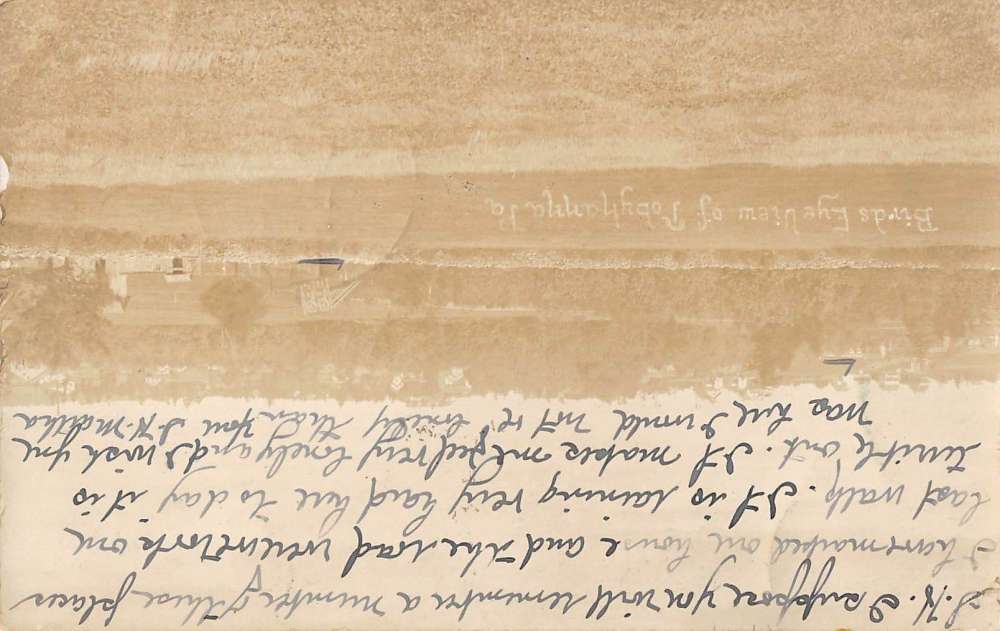 S.H. I suppose you will remember a number of these places
I have marked our house and the road were we took our
last walk. It is raining very hard here to day it is
terrible out. It makes me feel very lonely and I wish you
was here I would not be lonely then you S.H. Martha
Birds Eye View of Tobyhanna Pa